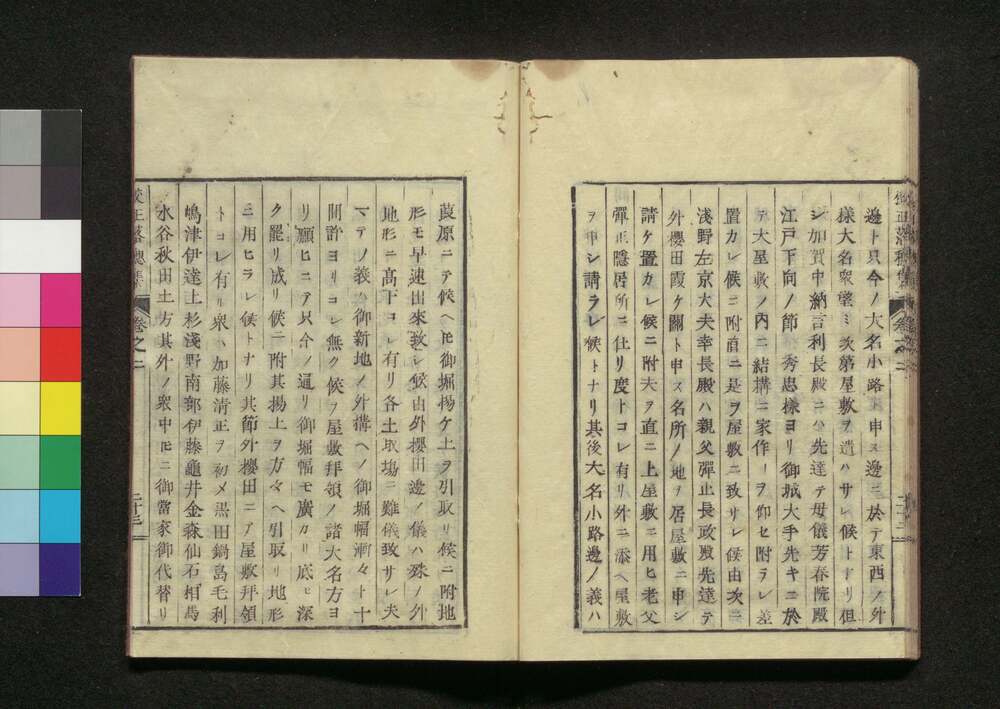 校正落穂集 卷之二
邊ト只今ノ大名小路ト申ス邊ニ於テ東西ノ外
様大名衆望ミ次第屋敷ヲ遣ハサレ候トナリ但
シ加賀中納言利長殿ニハ先達テ母儀芳春院殿
江戸下向ノ節秀忠様ヨリ御城大手先キニ於
テ大屋敷ノ内ニ結構ニ家作ーヲ仰セ附ラレ差
置カレ候ニ附直ニ是ヲ屋敷ニ致サレ候由次ニ
淺野左京大夫幸長殿ハ親父彈正長政殿先達テ
外櫻田霞ケ關ト申ス名所ノ地ヲ居屋敷ニ申シ
請ケ置カレ候ニ附夫ヲ直ニ上屋敷ニ用ヒ老父
彈正隱居所ニ仕リ度トコレ有リ外ニ添ヘ屋敷
ヲ申シ請ラレ候トナリ其後大名小路邊ノ義ハ
葭原ニテ候ヘ𪜈御堀揚ケ土ヲ引取リ候ニ附地
形モ早速出來致シ候由外櫻田邊ノ儀ハ殊ノ外
地形ニ高下コレ有リ各土取場ニ難儀致サレ夫
ニテノ義ハ御新地ノ外構ヘノ御堀幅漸々ト十
間許ヨリコレ無ク候ヲ屋敷拜領ノ諸大名方ヨ
リ願ヒニテ只今ノ通リ御堀幅モ廣カリ底モ深
ク罷リ成リ候ニ附其揚土ヲ方々ヘ引取リ地形
ニ用ヒラレ候トナリ其節外櫻田ニテ屋敷拜領
トコレ有リ衆ハ加藤清正ヲ初メ黒田鍋島毛利
嶋津伊達上杉淺野南部伊藤龜井金森仙石相馬
水谷秋田土方其外ノ衆中𪜈ニ御當家御代替リ
校正落穂集 卷之二 二十三